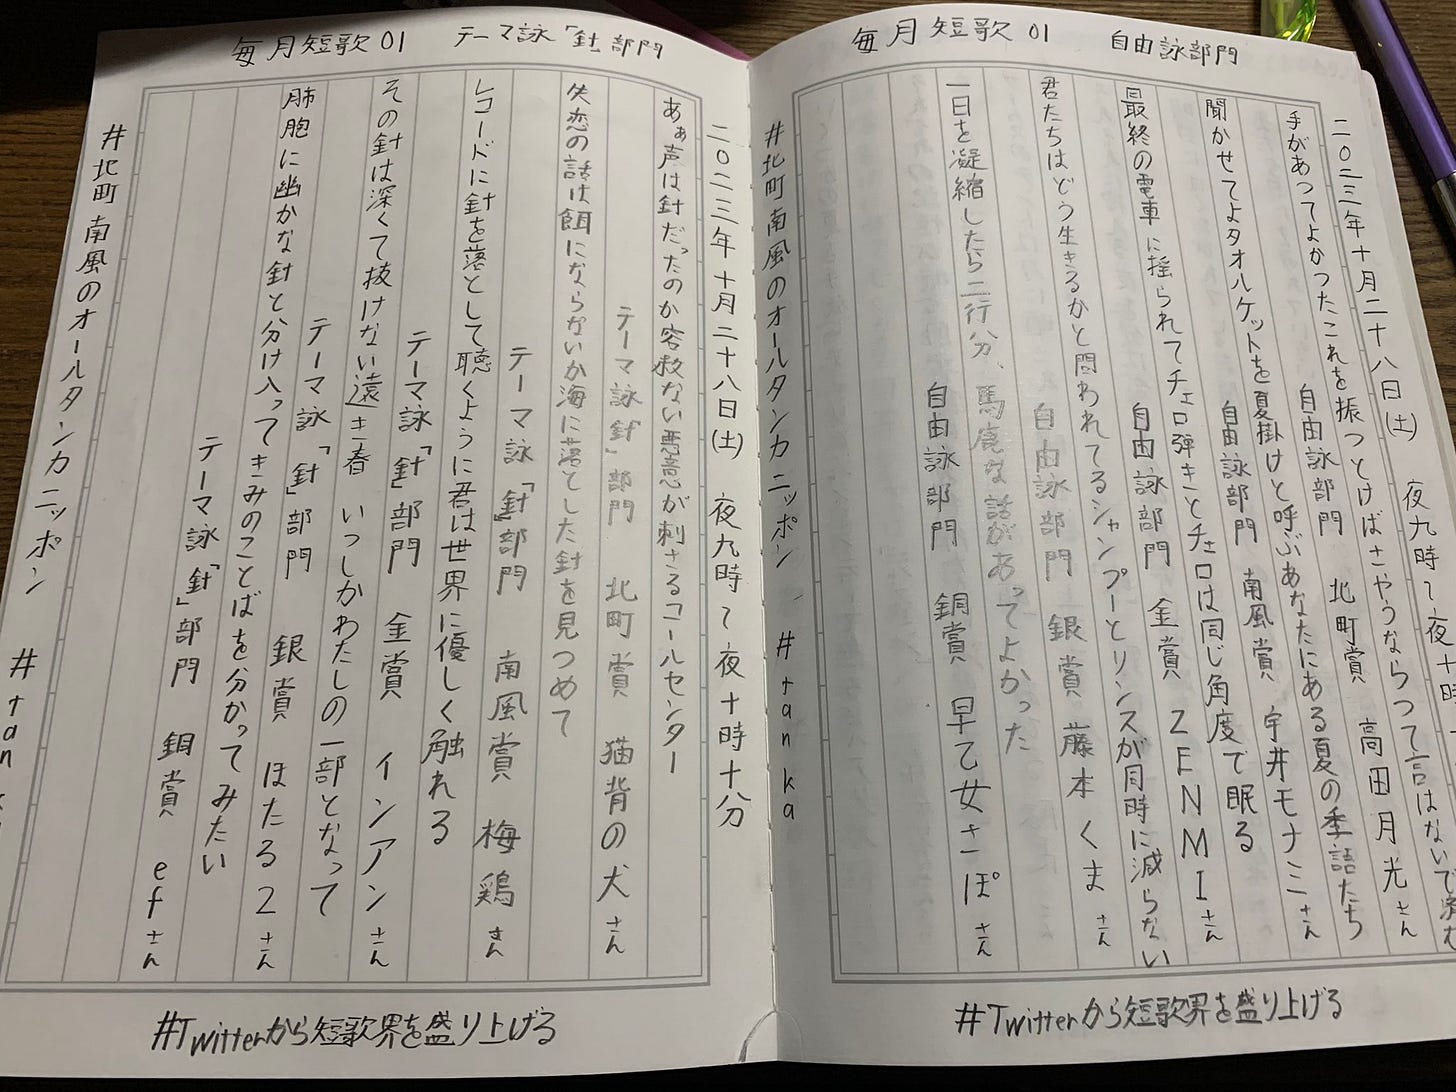 毎月短歌01　自由詠部門
二〇二三年十月二十八日(土)　夜九時〜夜十時
手があつてよかつたこれを振つとけばさやうならつて言はないで済む
自由詠部門　北町賞　高田月光さん
聞かせてよタオルケットを夏掛けと呼ぶあなたにある夏の季語たち
自由詠部門　南風賞　宇井モナミさん
最終の電車に揺られてチェロ弾きとチェロは同じ角度で眠る
自由詠部門　金賞　ZENMIさん
君たちはどう生きるかと問われてるシャンプーとリンスが同時に減らない
自由詠部門　銀賞　藤本くまさん
一日を凝縮したら二行分、馬鹿な話があってよかった
自由詠部門　銅賞　早乙女さぽさん
#北町南風のオールタンカニッポン　#tanka
#Twitterから短歌界を盛り上げる
毎月短歌01　テーマ詠「針」部門
二〇二三年十月二十八日(土)　夜九時〜夜十時十分
あぁ声は針だったのか容赦ない悪意が刺さるコールセンター
テーマ詠「針」部門　北町賞　猫背の犬さん
失恋の話は餌にならないか海に落とした針を見つめて
テーマ詠「針」部門　南風賞　梅鶏さん
レコードに針を落として聴くように君は世界に優しく触れる
テーマ詠「針」部門　金賞　インアンさん
その針は深くて抜けない遠き春　いつしかわたしの一部となって
テーマ詠「針」部門　銀賞　ほたる2さん
肺胞に幽かな針と分け入ってきみのことばを分かってみたい
テーマ詠「針」部門　銅賞　efさん
#北町南風のオールタンカニッポン　#tan
#Twitterから短歌界を盛り上げる